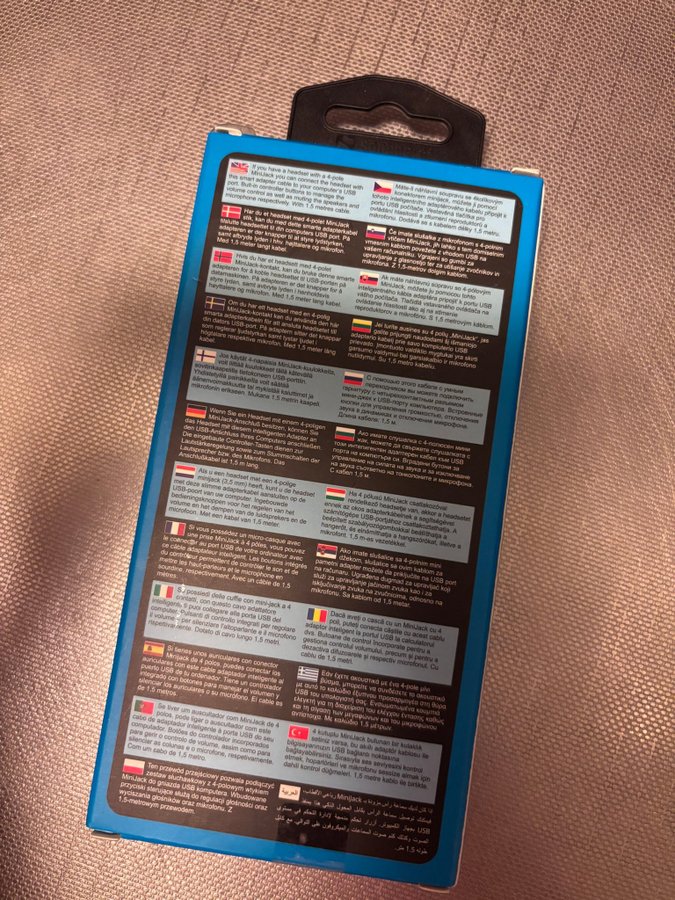 If you have a headset with a 4-pole
MiniJack you can connect the headset with
this smart adapter cable to your computer's USB
port. Built-in controller buttons to manage the
volume control as well as muting the speakers and
microphone respectively. With 1.5 metres cable.
Har du et headset med 4-polet MiniJack
stik, kan du med dette smarte adapterkabel
tilslutte headsettet til din computers USB port. På
adapteren er der knapper til at styre lydstyrken
samt afbryde lyden i hhv. højttalere og mikrofon.
Med 1,5 meter langt kabel.
Hvis du har et headsett med 4-polet
MiniJack-kontakt, kan du bruke denne smarte
adapteren for å koble headsettet til USB-porten på
datamaskinen. På adapteren er det knapper for å
styre lyden, samt avbryte lyden i henholdsvis
høyttalere og mikrofon. Med 1,5 meter lang kabel.
Om du har ett headset med en 4-polig
MiniJack-kontakt kan du använda den här
smarta adapterkabeln för att ansluta headsetet till
din dators USB-port. På adaptern sitter det knappar
som reglerar ljudstyrkan samt tystar ljudet i
högtalare respektive mikrofon. Med 1,5 meter lång
kabel.
Jos käytät 4-napaisia MiniJack-kuulokkeita,
voit liittää kuulokkeet tällä kätevällä
sovitinkaapelilla tietokoneen USB-porttiin.
Yhdistetyillä painikkeilla voit säätää
äänenvoimakkuutta tai mykistää kaiuttimet ja
mikrofonin erikseen. Mukana 1,5 metrin kaapeli.
Wenn Sie ein Headset mit einem 4-poligen
MiniJack-Anschluss besitzen, können Sie
das Headset mit diesem intelligenten Adapter an
den USB-Anschluss Ihres Computers anschließen.
Die eingebaute Controller-Tasten dienen zur
Lautstärkeregelung sowie zum Stummschalten der
Lautsprecher bzw. des Mikrofons. Das
Anschlußkabel ist 1,5 m lang.
Als u een headset met een 4-polige
minijack (3,5 mm) heeft, kunt u de headset
met deze slimme adapterkabel aansluiten op de
USB-poort van uw computer. Ingebouwde
bedieningsknoppen voor het regelen van het
volume en het dempen van de luidsprekers en de
microfoon. Met een kabel van 1,5 meter.
Si vous possédez un micro-casque avec
une prise MiniJack à 4 pôles, vous pouvez
le connecter au port USB de votre ordinateur avec
ce câble adaptateur intelligent. Les boutons intégrés
du contrôleur permettent de contrôler le son et de
mettre les haut-parleurs et le microphone en
sourdine, respectivement. Avec un câble de 1,5
mètres.
Se possiedi delle cuffie con mini-jack a 4
contatti, con questo cavo adattatore
intelligente, ti puoi collegare alla porta USB del
computer. Pulsanti di controllo integrati per regolare
il volume e per silenziare l'altoparlante e il microfono
rispettivamente. Dotato di cavo lungo 1,5 metri.
Si tienes unos auriculares con conector
MiniJack de 4 polos, puedes conectar los
auriculares con este cable adaptador inteligente al
puerto USB de tu ordenador. Tiene un controlador
integrado con botones para manejar el volumen y
silenciar los auriculares o su micrófono. El cable es
de 1.5 metros
Se tiver um auscultador com MiniJack de 4
polos, pode ligar o auscultador com este
cabo de adaptador inteligente à porta USB do seu
computador. Botões de controlador incorporados
para gerir o controlo de volume, assim como para
silenciar as colunas e o microfone, respetivamente.
Com um cabo de 1,5 metro.
Ten przewód przejściowy pozwala podłączyć
zestaw słuchawkowy z 4-polowym wtykiem
MiniJack do gniazda USB komputera. Wbudowane
przyciski sterujące służą do regulacji głośności oraz
wyciszania głośników oraz mikrofonu. Z
1,5-metrowym przewodem.
Máte-li náhlavní soupravu se 4kolíkovým
konektorem minijack, můžete ji pomocí
tohoto inteligentního adaptérového kabelu připojit k
portu USB počítače. Vestavěná tlačítka pro
ovládání hlasitosti a ztlumení reproduktorů a
mikrofonu. Dodává se s kabelem délky 1,5 metru.
Če imate slušalke z mikrofonom s 4-polnim
vtičem MiniJack, jih lahko s tem domiselnim
vmesnim kablom povežete z vhodom USB na
vašem računalniku. Vgrajeni so gumbi za
upravljanje z glasnostjo ter za utišanje zvočnikov in
mikrofona. Z 1,5-metrov dolgim kablom.
Ak máte náhlavnú súpravu so 4-pólovým
MiniJack, môžete ju pomocou tohto
inteligentného kábla adaptéra pripojiť k portu USB
vášho počítača. Tlačidlá vstavaného ovládača na
ovládanie hlasitosti ako aj na stlmenie
reproduktorov a mikrofónu. S 1,5 metrovým káblom.
Jei turite ausines su 4 polių „MiniJack“, jas
galite prijungti naudodami šį išmanųjį
adapterio kabelį prie savo kompiuterio USB
prievado. Įmontuoto valdiklio mygtukai yra skirti
garsumo valdymui bei garsiakalbio ir mikrofono
nutildymui. Su 1,5 metro kabeliu.
С помощью этого кабеля с умным
переходником вы можете подключить
гарнитуру с четырехконтактным разъемом
миниджек к USB-порту компьютера. Встроенные
кнопки для управления громкостью, отключения
звука в динамиках и отключения микрофона.
Длина кабеля: 1,5 м.
Ако имате слушалка с 4-полюсен мини
жак, можете да свържете слушалката с
този интелигентен адаптерен кабел към USB
порта на компютъра си. Вградени бутони за
управление на силата на звука и за изключване
на звука съответно на тонколоните и микрофона.
С кабел 1,5 м.
Ha 4 pólusú MiniJack csatlakozóval
rendelkező headsetje van, akkor a headsetet
ennek az okos adapterkábelnek a segítségével
számítógépe USB-portjához csatlakoztathatja. A
beépített szabályozógombokkal beállíthatja a
hangerőt, és elnémíthatja a hangszórókat, illetve a
mikrofont. 1,5 m-es vezetékkel.
Ako imate slušalice sa 4-polnim mini
džekom, slušalice sa ovim kablom za
pametni adapter možete da priključite na USB port
na računaru. Ugrađena dugmad za upravljač koji
služi za upravljanje jačinom zvuka kao i za
isključivanje zvuka na zvučnicima, odnosno na
mikrofonu. Sa kablom od 1,5 metar.
Dacă aveți o cască cu un MiniJack cu 4
poli, puteți conecta căștile cu acest cablu
adaptor inteligent la portul USB la calculatorul
dvs. Butoane de control încorporate pentru a
gestiona controlul volumului, precum și pentru a
dezactiva difuzoarele și respectiv microfonul. Cu
un cablu de 1,5 metri.
Εάν έχετε ακουστικά με ένα 4-pole μίνι
βύσμα, μπορείτε να συνδέσετε το ακουστικό
με αυτό το καλώδιο έξυπνου προσαρμογέα στη θύρα
USB του υπολογιστή σας. Ενσωματωμένα κουμπιά
ελεγκτή για τη διαχείριση του ελέγχου έντασης καθώς
και τη σίγαση των μεγαφώνων και του μικροφώνου
αντίστοιχα. Με καλώδιο 1,5 μέτρων.
4 kutuplu MiniJack bulunan bir kulaklık
setiniz varsa, bu akıllı adaptör kablosu ile
bilgisayarınızın USB bağlantı noktasına
bağlayabilirsiniz. Sırasıyla ses seviyesini kontrol
etmek, hoparlörleri ve mikrofonu sessize almak için
dahili kontrol düğmeleri. 1,5 metre kablo ile birlikte.
العربية